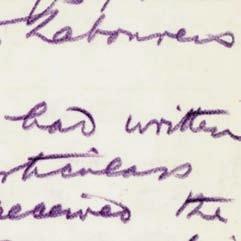 Labourers
had written
rticulars
received the